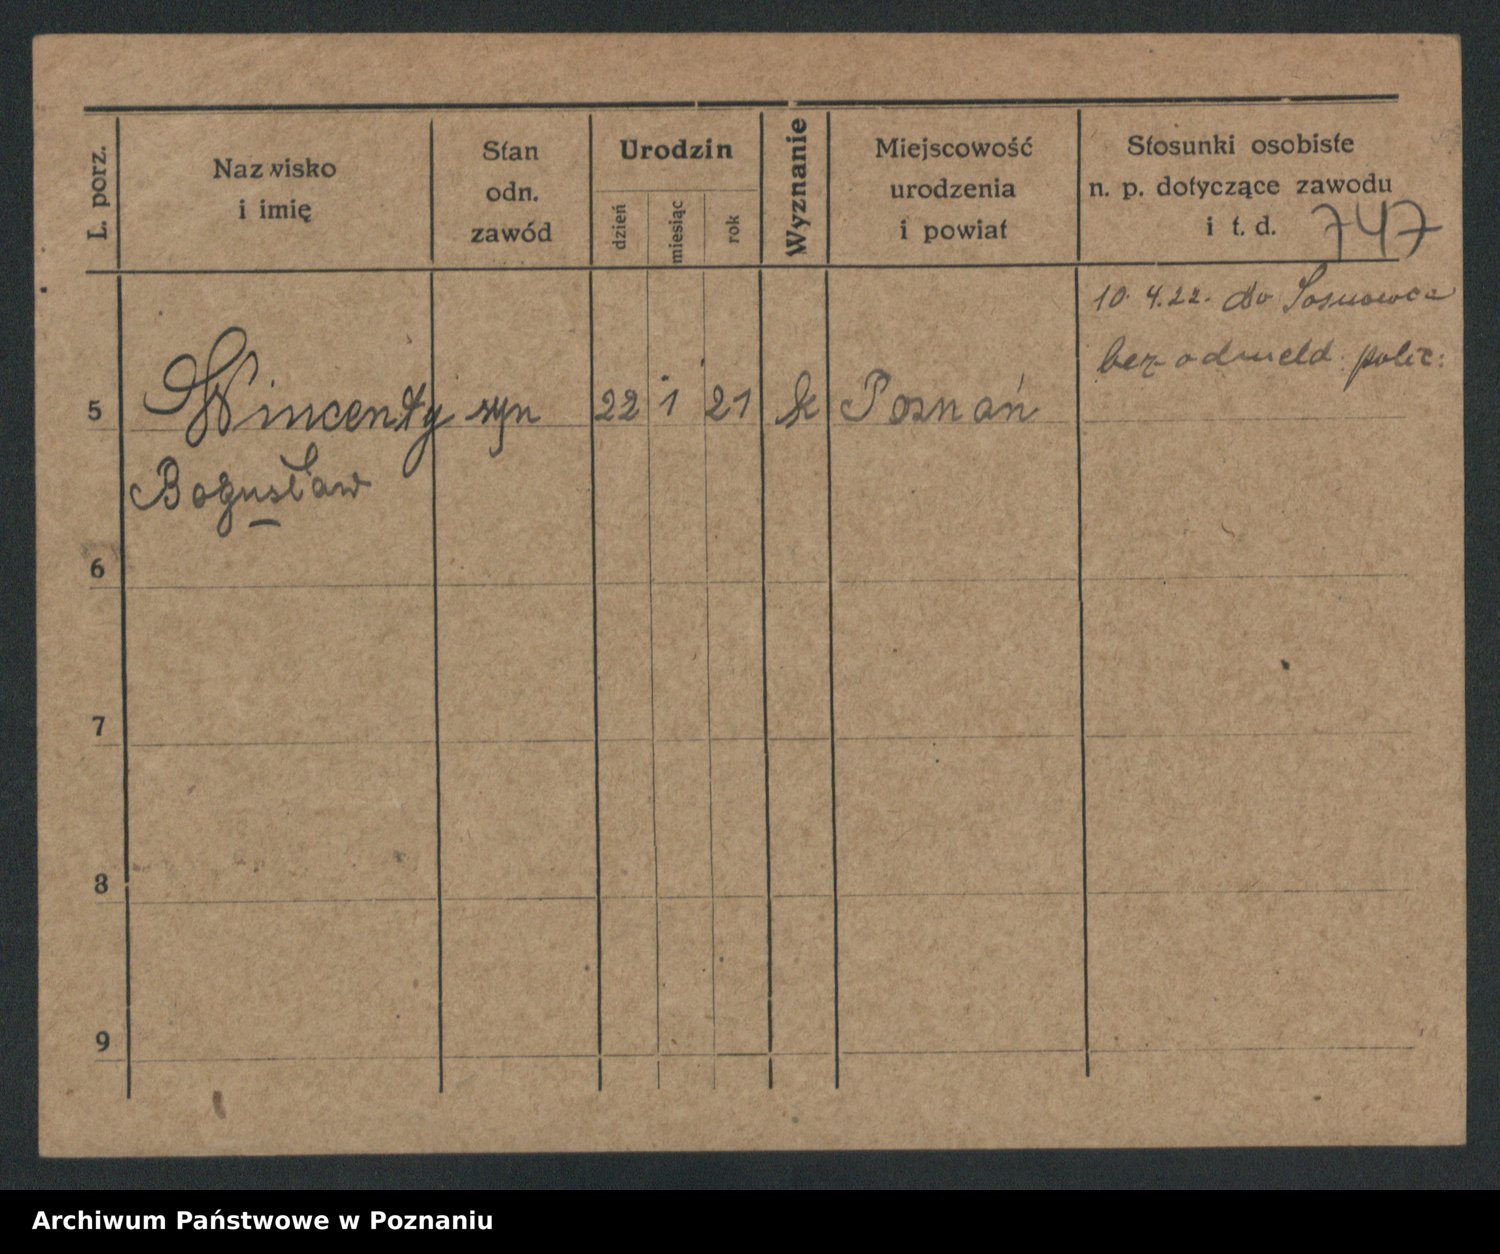 L. porz.
Nazwisko
i imię
Stan
odn.
zawód
Urodzin
dzień
miesiąc
rok
Wyznanie
Miejscowość
urodzenia
i powiat
Stosunki osobiste
n. p. dotyczące zawodu
i t. d.
747
10. 4. 22. do Sosnowca
bez odmeld. polic.
5 Wincenty syn 22 1 21 k Poznań
Bogusław
6
7
8
9
Archiwum Państwowe w Poznaniu